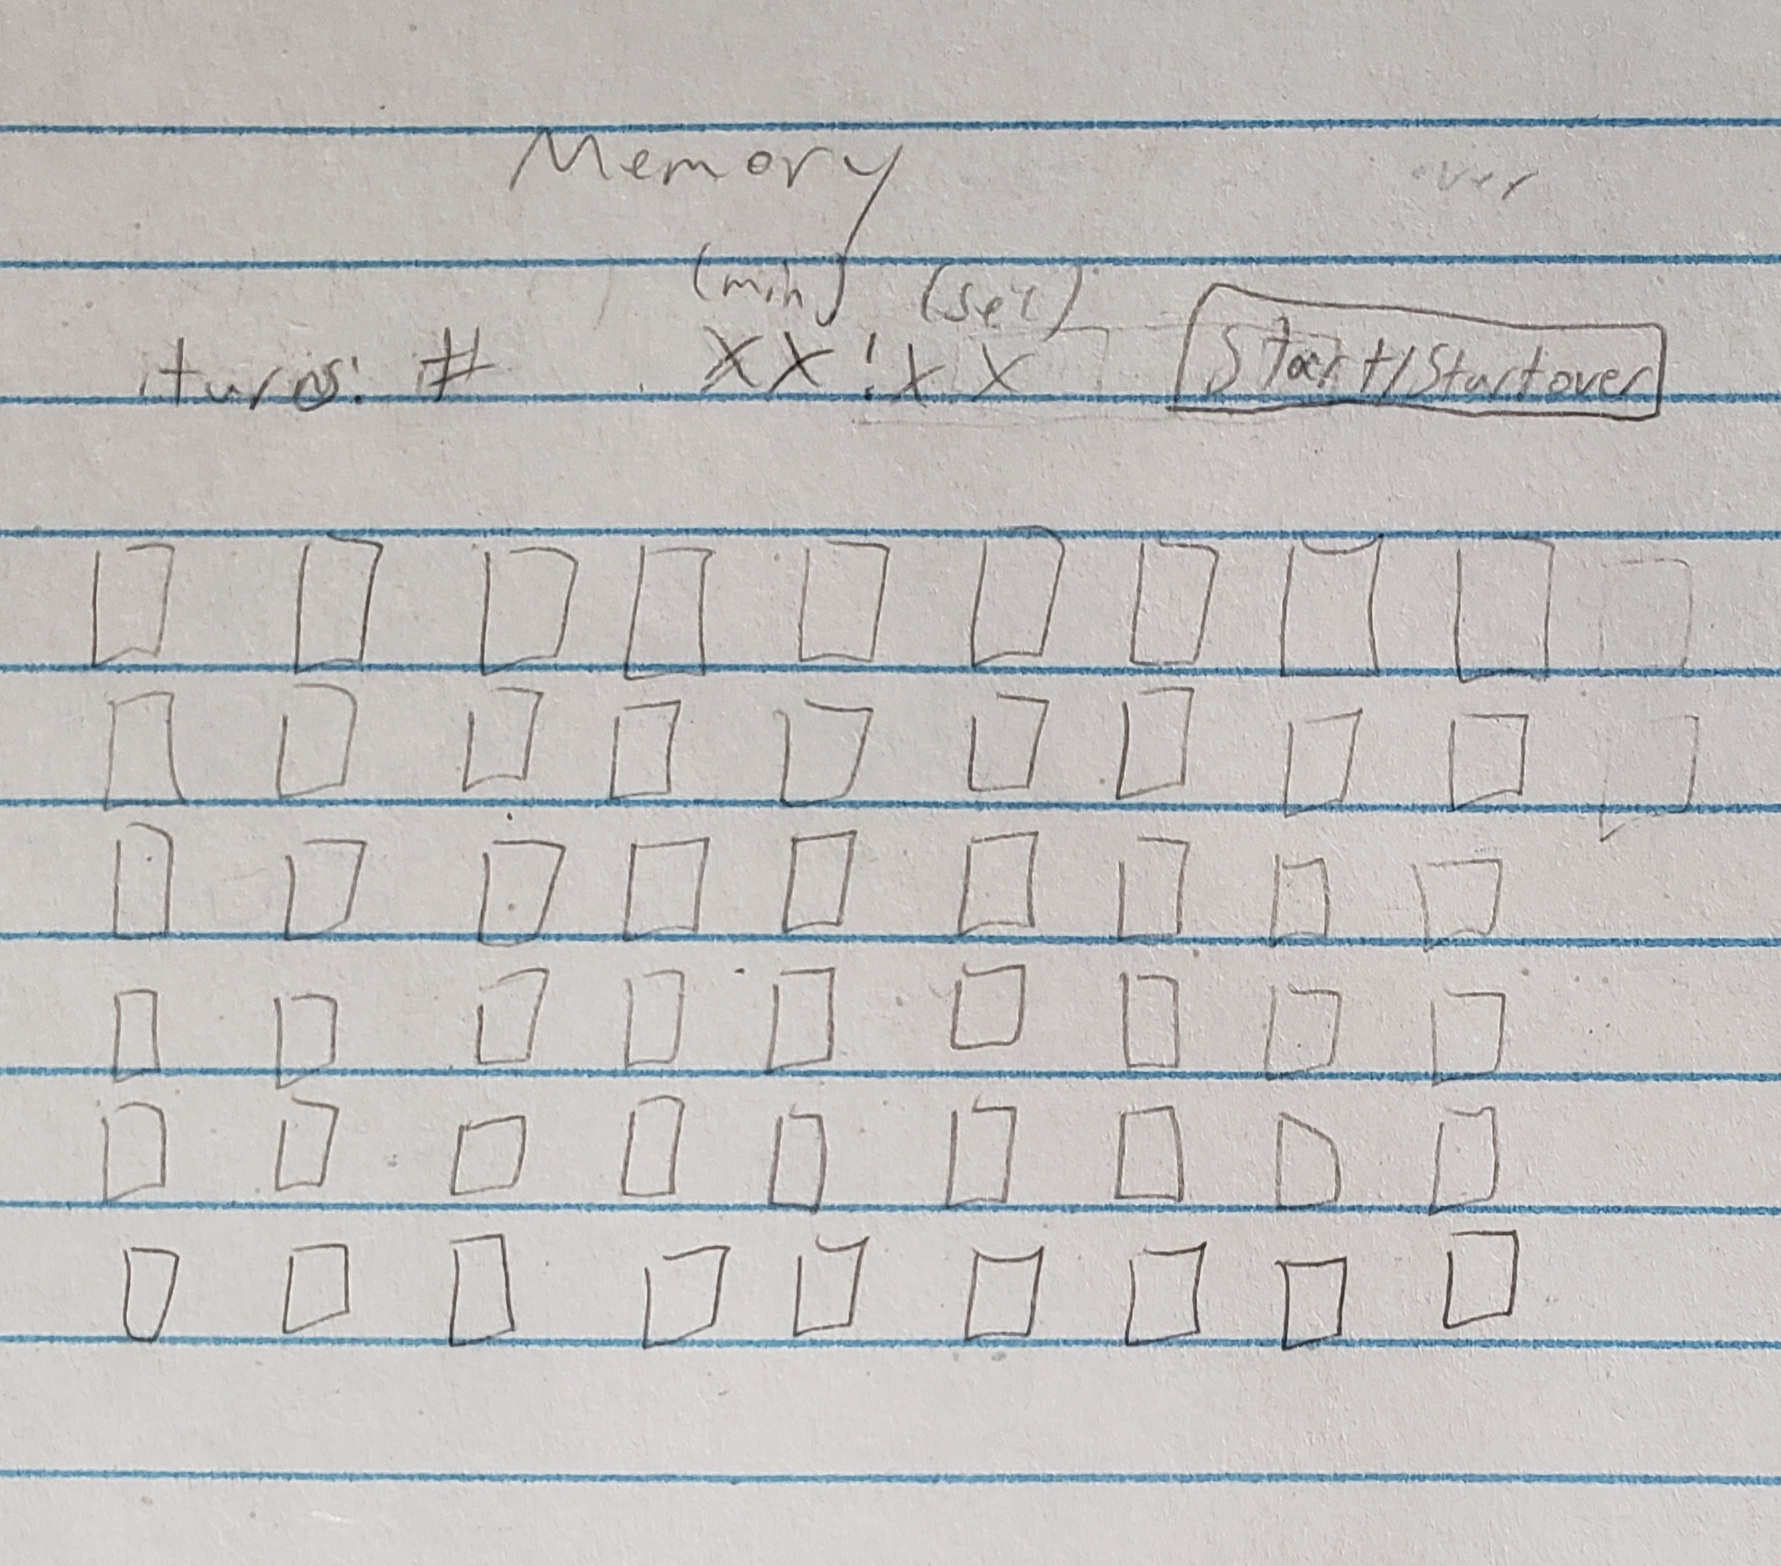 Memory
over
(min) (sec)
turns: # XX:XX Start/Startover